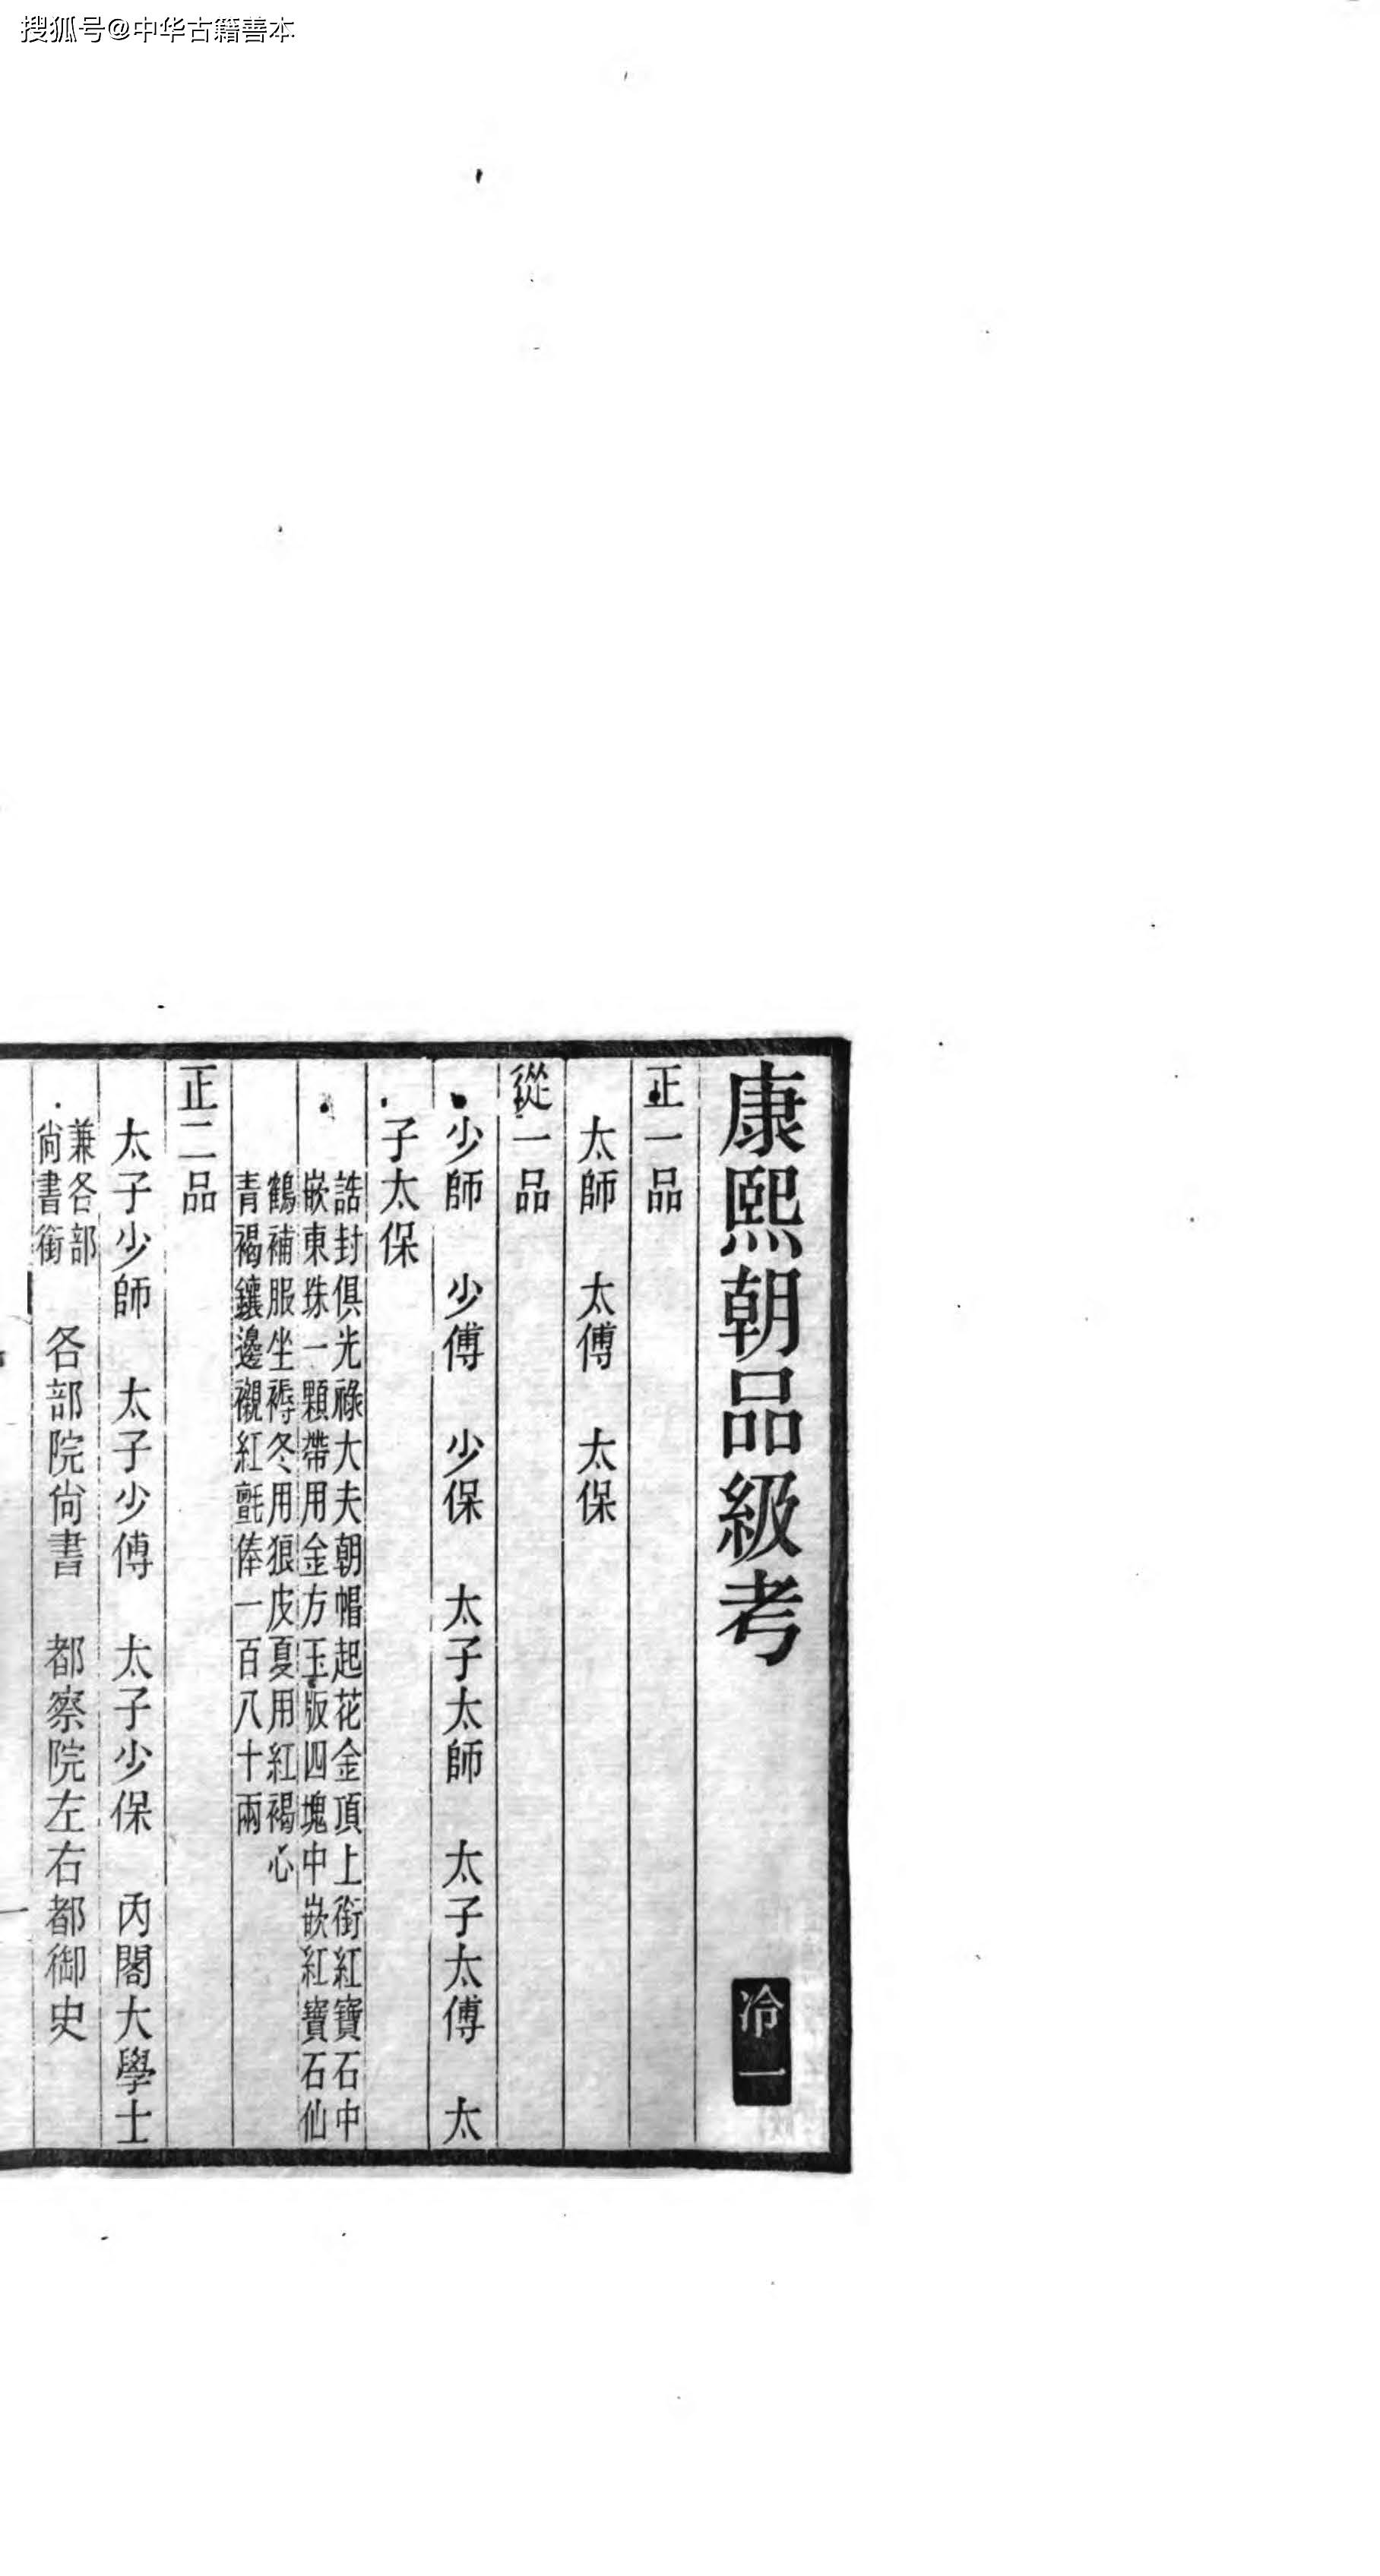 搜狐号@中华古籍善本
康熙朝品級考 冷一
正一品
太師 太傅 太保
從一品
少師 少傅 少保 太子太師 太子太傅 太
子太保
誥封俱光祿大夫朝帽起花金頂上銜紅寶石中
嵌東珠一顆帶用金方玉版四塊中嵌紅寶石仙
鶴補服坐褥冬用狼皮夏用紅褐心
青褐鑲邊襯紅氈俸一百八十兩
正二品
太子少師 太子少傅 太子少保 內閣大學士
兼各部
尚書銜 各部院尚書 都察院左右都御史